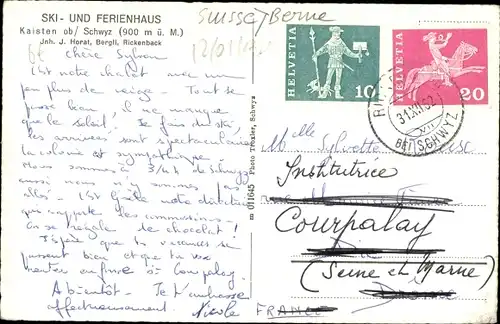 SKI - UND FERIENHAUS
Kaisten ob/ Schwyz (900 m ü. M.)
Jnh. J. Horat, Bergli, Rickenback
Suisse/Berne
12/01/
Chère Sylvou
C'est notre chalet avec un
peu plus de neige. Tout se
passe beau, il ne manque
que le soleil. Je fais du ski,
les arrivées sont spectaculaires
la colonie est sympathique.
Nous sommes à 3/4 h de Schwyz
aussi nous n'y sommes pas
allés. C'est Gisèle notre directrice
qui rapporte les commissions.
On se régale de chocolat !
J'espère que tes vacances se
passent bien et que tu vas
rentrer en forme à Courpalay.
A bientôt. Je t'embrasse
affectueusement. Nicole
m 011645 Photo Trexler, Schwyz
HELVETIA
10
HELVETIA
20
31.XII.62
BEI SCHWYZ
Melle Sylvette
Institutrice
Courpalay
(Seine et Marne)
Drôme
FRANCE